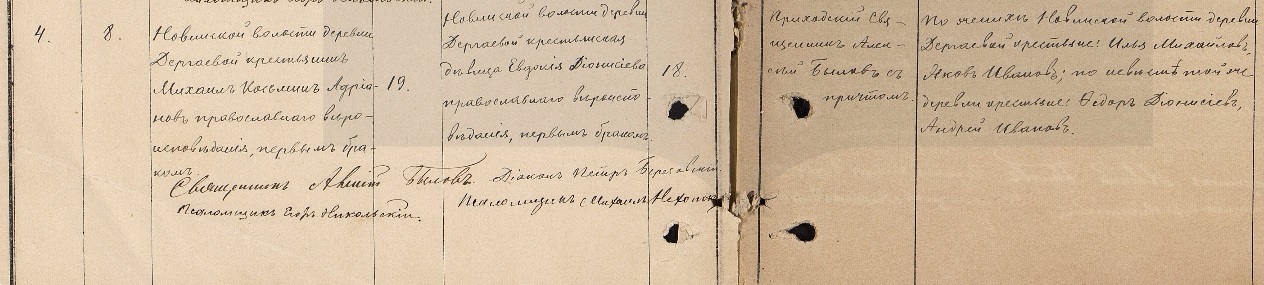 4.
8.
Новинской волости деревни
Дергаевой крестьянинъ
Михаилъ Косьминъ Адріа-
новъ православнаго веро-
исповѣданія, первымъ бра-
комъ.
19.
Новинской волости деревни
Дергаевой крестьянская
дѣвица Евдокія Діонисіева
православнаго вѣроиспо-
вѣданія, первымъ бракомъ.
18.
Приходскій Свя-
щенникъ Алек-
сѣй Быловъ съ
причтомъ.
По женихѣ Новинской волости деревни
Дергаевой крестьяне: Илья Михайловъ,
Яковъ Ивановъ; по невѣстѣ той же
деревни крестьяне: Ѳедоръ Діонисіевъ,
Андрей Ивановъ.
Священникъ Быловъ. Діаконъ Петръ
Псаломщикъ Егоръ Никольскій. Псаломщикъ Михаилъ